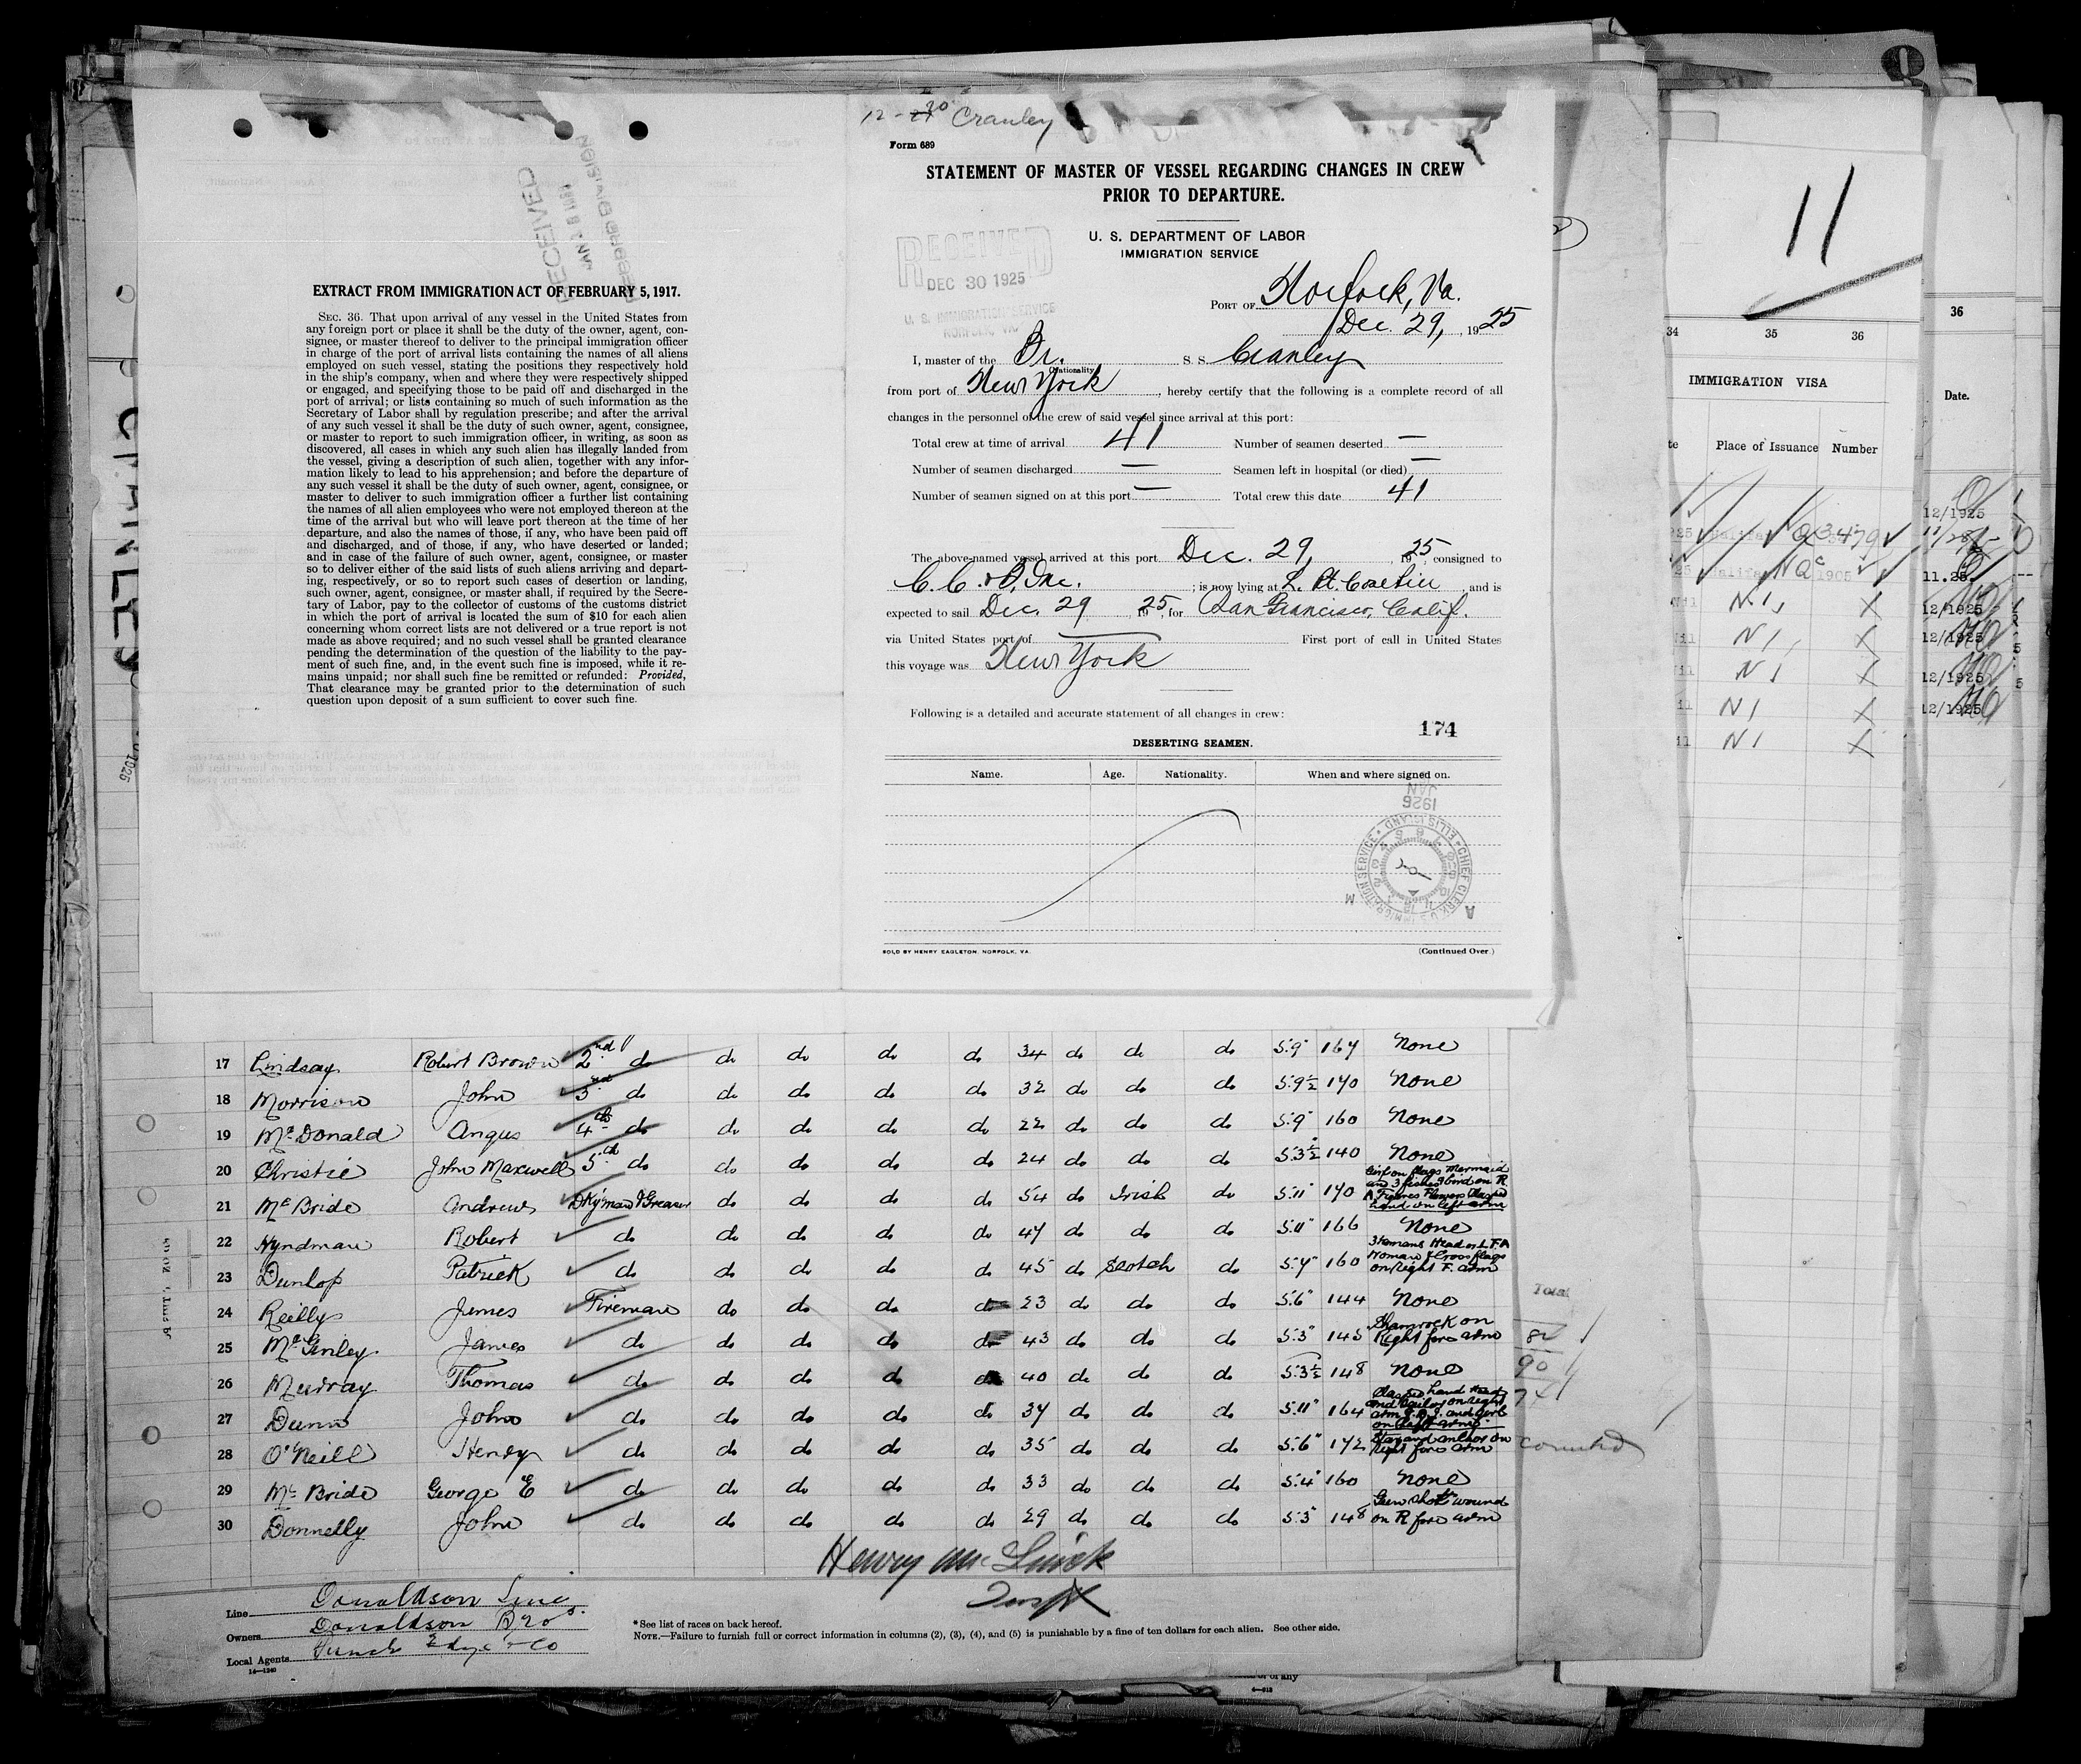 EXTRACT FROM IMMIGRATION ACT OF FEBRUARY 5, 1917.
SEC. 36. That upon arrival of any vessel in the United States from
any foreign port or place it shall be the duty of the owner, agent, con-
signee, or master thereof to deliver to the principal immigration officer
in charge of the port of arrival lists containing the names of all aliens
employed on such vessel, stating the positions they respectively hold
in the ship's company, when and where they were respectively shipped
or engaged, and specifying those to be paid off and discharged in the
port of arrival; or lists containing so much of such information as the
Secretary of Labor shall by regulation prescribe; and after the arrival
of any such vessel it shall be the duty of such owner, agent, consignee,
or master to report to such immigration officer, in writing, as soon as
discovered, all cases in which any such alien has illegally landed from
the vessel, giving a description of such alien, together with any infor-
mation likely to lead to his apprehension; and before the departure of
any such vessel it shall be the duty of such owner, agent, consignee, or
master to deliver to such immigration officer a further list containing
the names of all alien employees who were not employed thereon at the
time of the arrival but who will leave port thereon at the time of her
departure, and also the names of those, if any, who have been paid off
and discharged, and of those, if any, who have deserted or landed;
and in case of the failure of such owner, agent, consignee, or master
so to deliver either of the said lists of such aliens arriving and depart-
ing, respectively, or so to report such cases of desertion or landing,
such owner, agent, consignee, or master shall, if required by the Secre-
tary of Labor, pay to the collector of customs of the customs district
in which the port of arrival is located the sum of $10 for each alien
concerning whom correct lists are not delivered or a true report is not
made as above required; and no such vessel shall be granted clearance
pending the determination of the question of the liability to the pay-
ment of such fine, and, in the event such fine is imposed, while it re-
mains unpaid; nor shall such fine be remitted or refunded: Provided,
That clearance may be granted prior to the determination of such
question upon deposit of a sum sufficient to cover such fine.
RECEIVED
12-30 Cranley
Form 689
STATEMENT OF MASTER OF VESSEL REGARDING CHANGES IN CREW
PRIOR TO DEPARTURE.
U. S. DEPARTMENT OF LABOR
IMMIGRATION SERVICE
RECEIVED
DEC 30 1925
U. S. IMMIGRATION SERVICE
NORFOLK, VA.
PORT OF Norfolk, Va.
Dec. 29, 1925
I, master of the Br. S. S. Cranley
(Nationality)
from port of New York, hereby certify that the following is a complete record of all
changes in the personnel of the crew of said vessel since arrival at this port:
Total crew at time of arrival 41 Number of seamen deserted —
Number of seamen discharged — Seamen left in hospital (or died) —
Number of seamen signed on at this port — Total crew this date 41
The above-named vessel arrived at this port Dec. 29, 1925 consigned to
C. C. & D. Inc.; is now lying at L. Pt. Coaling, and is
expected to sail Dec. 29 1925, for San Francisco, Calif.
via United States port of — First port of call in United States
this voyage was New York
Following is a detailed and accurate statement of all changes in crew:
174
DESERTING SEAMEN.
Name. Age. Nationality. When and where signed on.
JAN
1926
CHIEF CLERK U.S. IMMIGRATION SERVICE • ELLIS ISLAND •
A M
SOLD BY HENRY EAGLETON, NORFOLK, VA. (Continued Over)
17 Lindsay Robert Brown 2nd do do do do do 34 do do do 5'9" 164 None
18 Morrison John 3rd do do do do do 32 do do do 5'9½ 170 None
19 McDonald Angus 4th do do do do do 22 do do do 5'9" 160 None
20 Christie John Maxwell 5th do do do do do 24 do do do 5'3½ 140 None
21 McBride Andrew Dkyman & Greaser do do do do 54 do Irish do 5'11" 170 Girl on flags Mermaid
22 Hyndman Robert do do do do do 47 do do do 5'11" 166 None
23 Dunlop Patrick do do do do do 45 do Scotch do 5'4" 160 Woman & Cross flags on right F. arm
24 Reilly James Fireman do do do do 23 do do do 5'6" 144 None
25 McGinley James do do do do do 43 do do do 5'3" 145 Shamrock on Right fore arm
26 Murray Thomas do do do do do 40 do do do 5'3½ 148 None
27 Dunn John do do do do do 34 do do do 5'11" 164
28 O'Neill Henry do do do do do 35 do do do 5'6" 172 Star and anchor on Right fore arm
29 McBride George E do do do do do 33 do do do 5'4" 160 None
30 Donnelly John do do do do do 29 do do do 5'3" 148 Gun shot wound on R fore arm
Henry Mc
Line Donaldson Line
Owners Donaldson Bros.
Local Agents Funch Edye & Co
14—1240
*See list of races on back hereof.
NOTE.—Failure to furnish full or correct information in columns (2), (3), (4), and (5) is punishable by a fine of ten dollars for each alien. See other side.
Total
90
11
34 35 36
IMMIGRATION VISA
Place of Issuance Number
N I X
N I X
N I X
N I X
N I X
36
Date.
12/1925
11.25
12/1925
12/1925
12/1925
12/1925